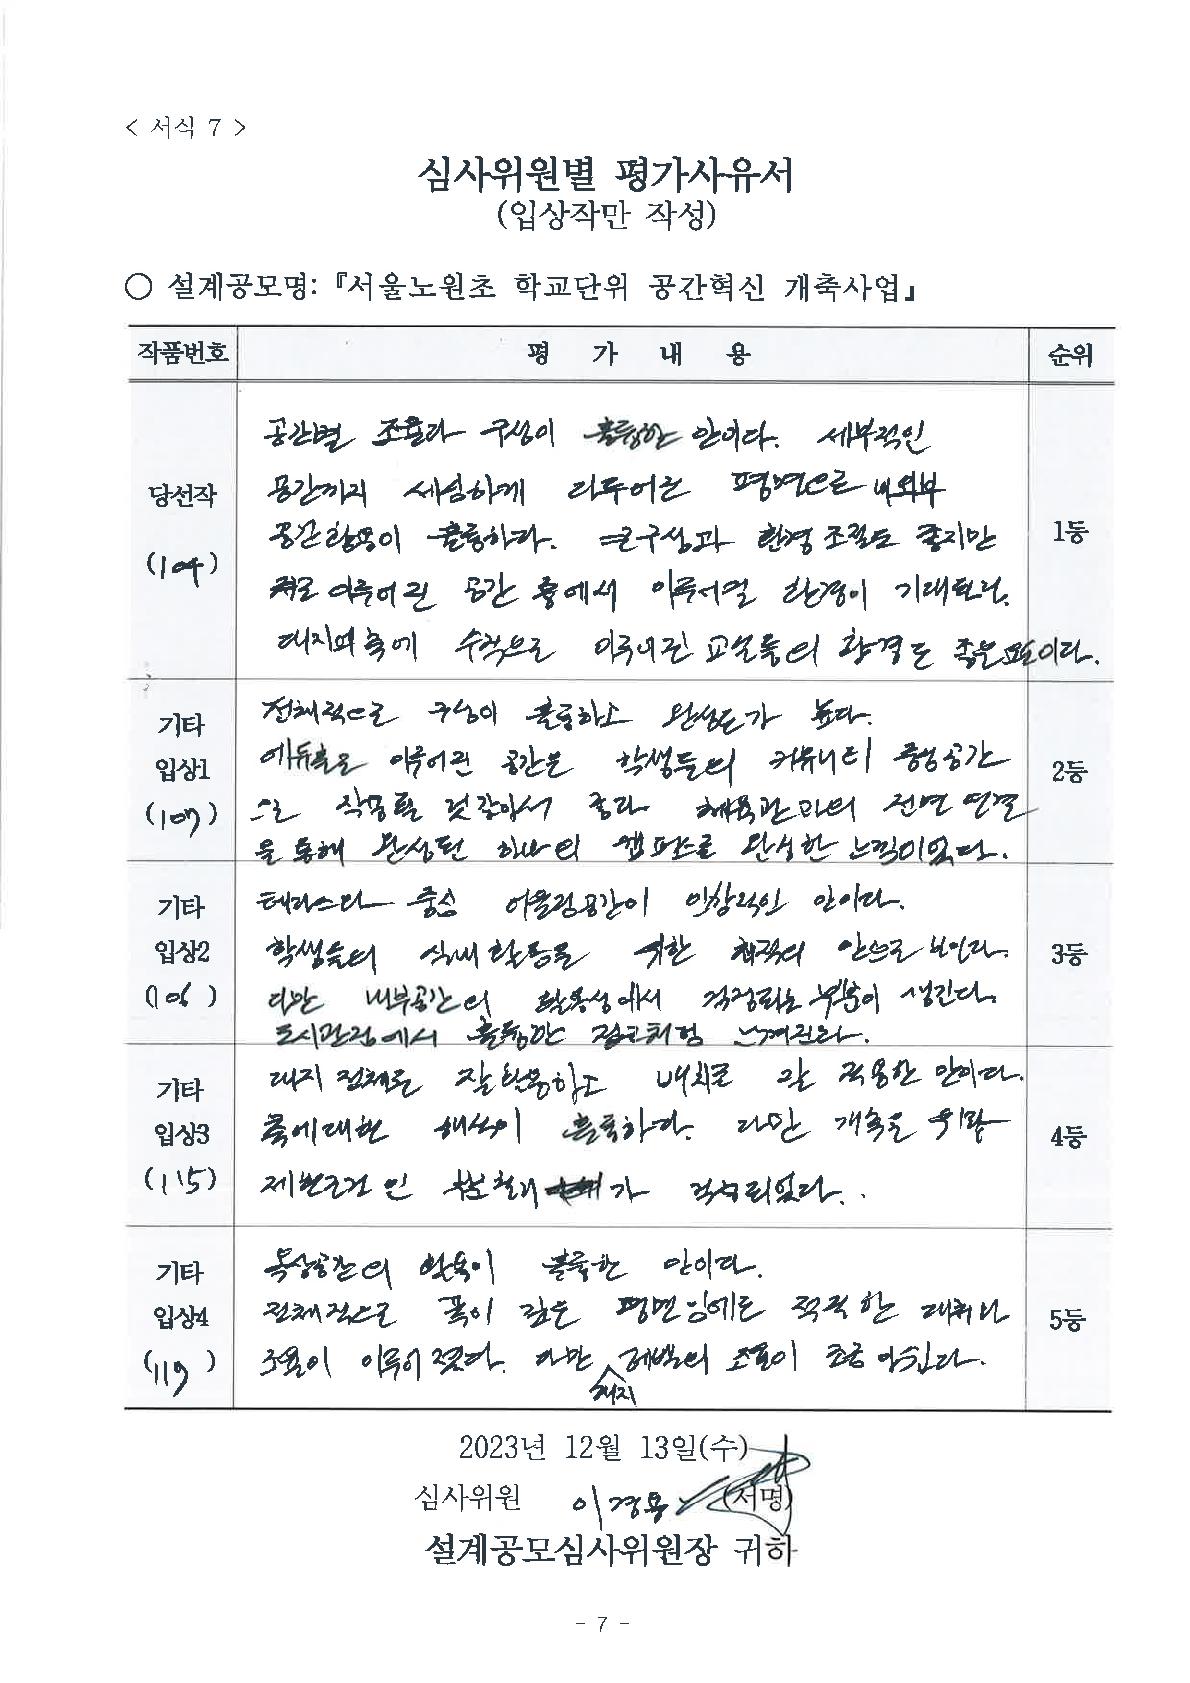 < 서식 7 >
심사위원별 평가사유서
(입상작만 작성)
○ 설계공모명: 『서울노원초 학교단위 공간혁신 개축사업』
작품번호 평 가 내 용 순위
당선작
(104)
공간별 조율과 구성이 훌륭한 안이다. 세부적인
공간까지 세심하게 다루어온 평면으로 내외부
공간활용이 훌륭하다. 구성과 환경 조절도 좋지만
이루어진 공간 중에서 이루어질 환경이 기대된다.
대지외측에 수직으로 이루어진 교실들의 환경도 좋은 이다.
1등
기타
입상1
(107)
전체적으로 구성이 훌륭하고 완성도가 높다.
에듀홀은 이루어진 공간은 학생들의 커뮤니티 중앙공간
으로 작동될 것같아서 좋다 체육관과의 전면 연결
을 통해 완성된 하나의 캠퍼스로 완성한 느낌이었다.
2등
기타
입상2
(106)
테라스라 중심 어울림공간이 인상적인 안이다.
학생들의 실내활동을 위한 최적의 안으로 보인다.
다만 내부공간의 활용성에서 걱정되는 부분이 생긴다.
도시관점에서 훌륭한 느껴진다.
3등
기타
입상3
(115)
대지 전체를 잘 활용하고 배치로 잘 적용한 안이다.
축에 대한 해석이 훌륭하다. 다만 개축을 위한
제반조건인 가 걱정되었다.
4등
기타
입상4
(119)
옥상공간의 활용이 훌륭한 안이다.
전체적으로 폭이 깊은 평면임에도 적절한 대처나
조율이 이루어졌다. 다만 대지 레벨의 조율이 조금 아쉽다.
5등
2023년 12월 13일(수)
심사위원 이경용 (서명)
설계공모심사위원장 귀하
- 7 -